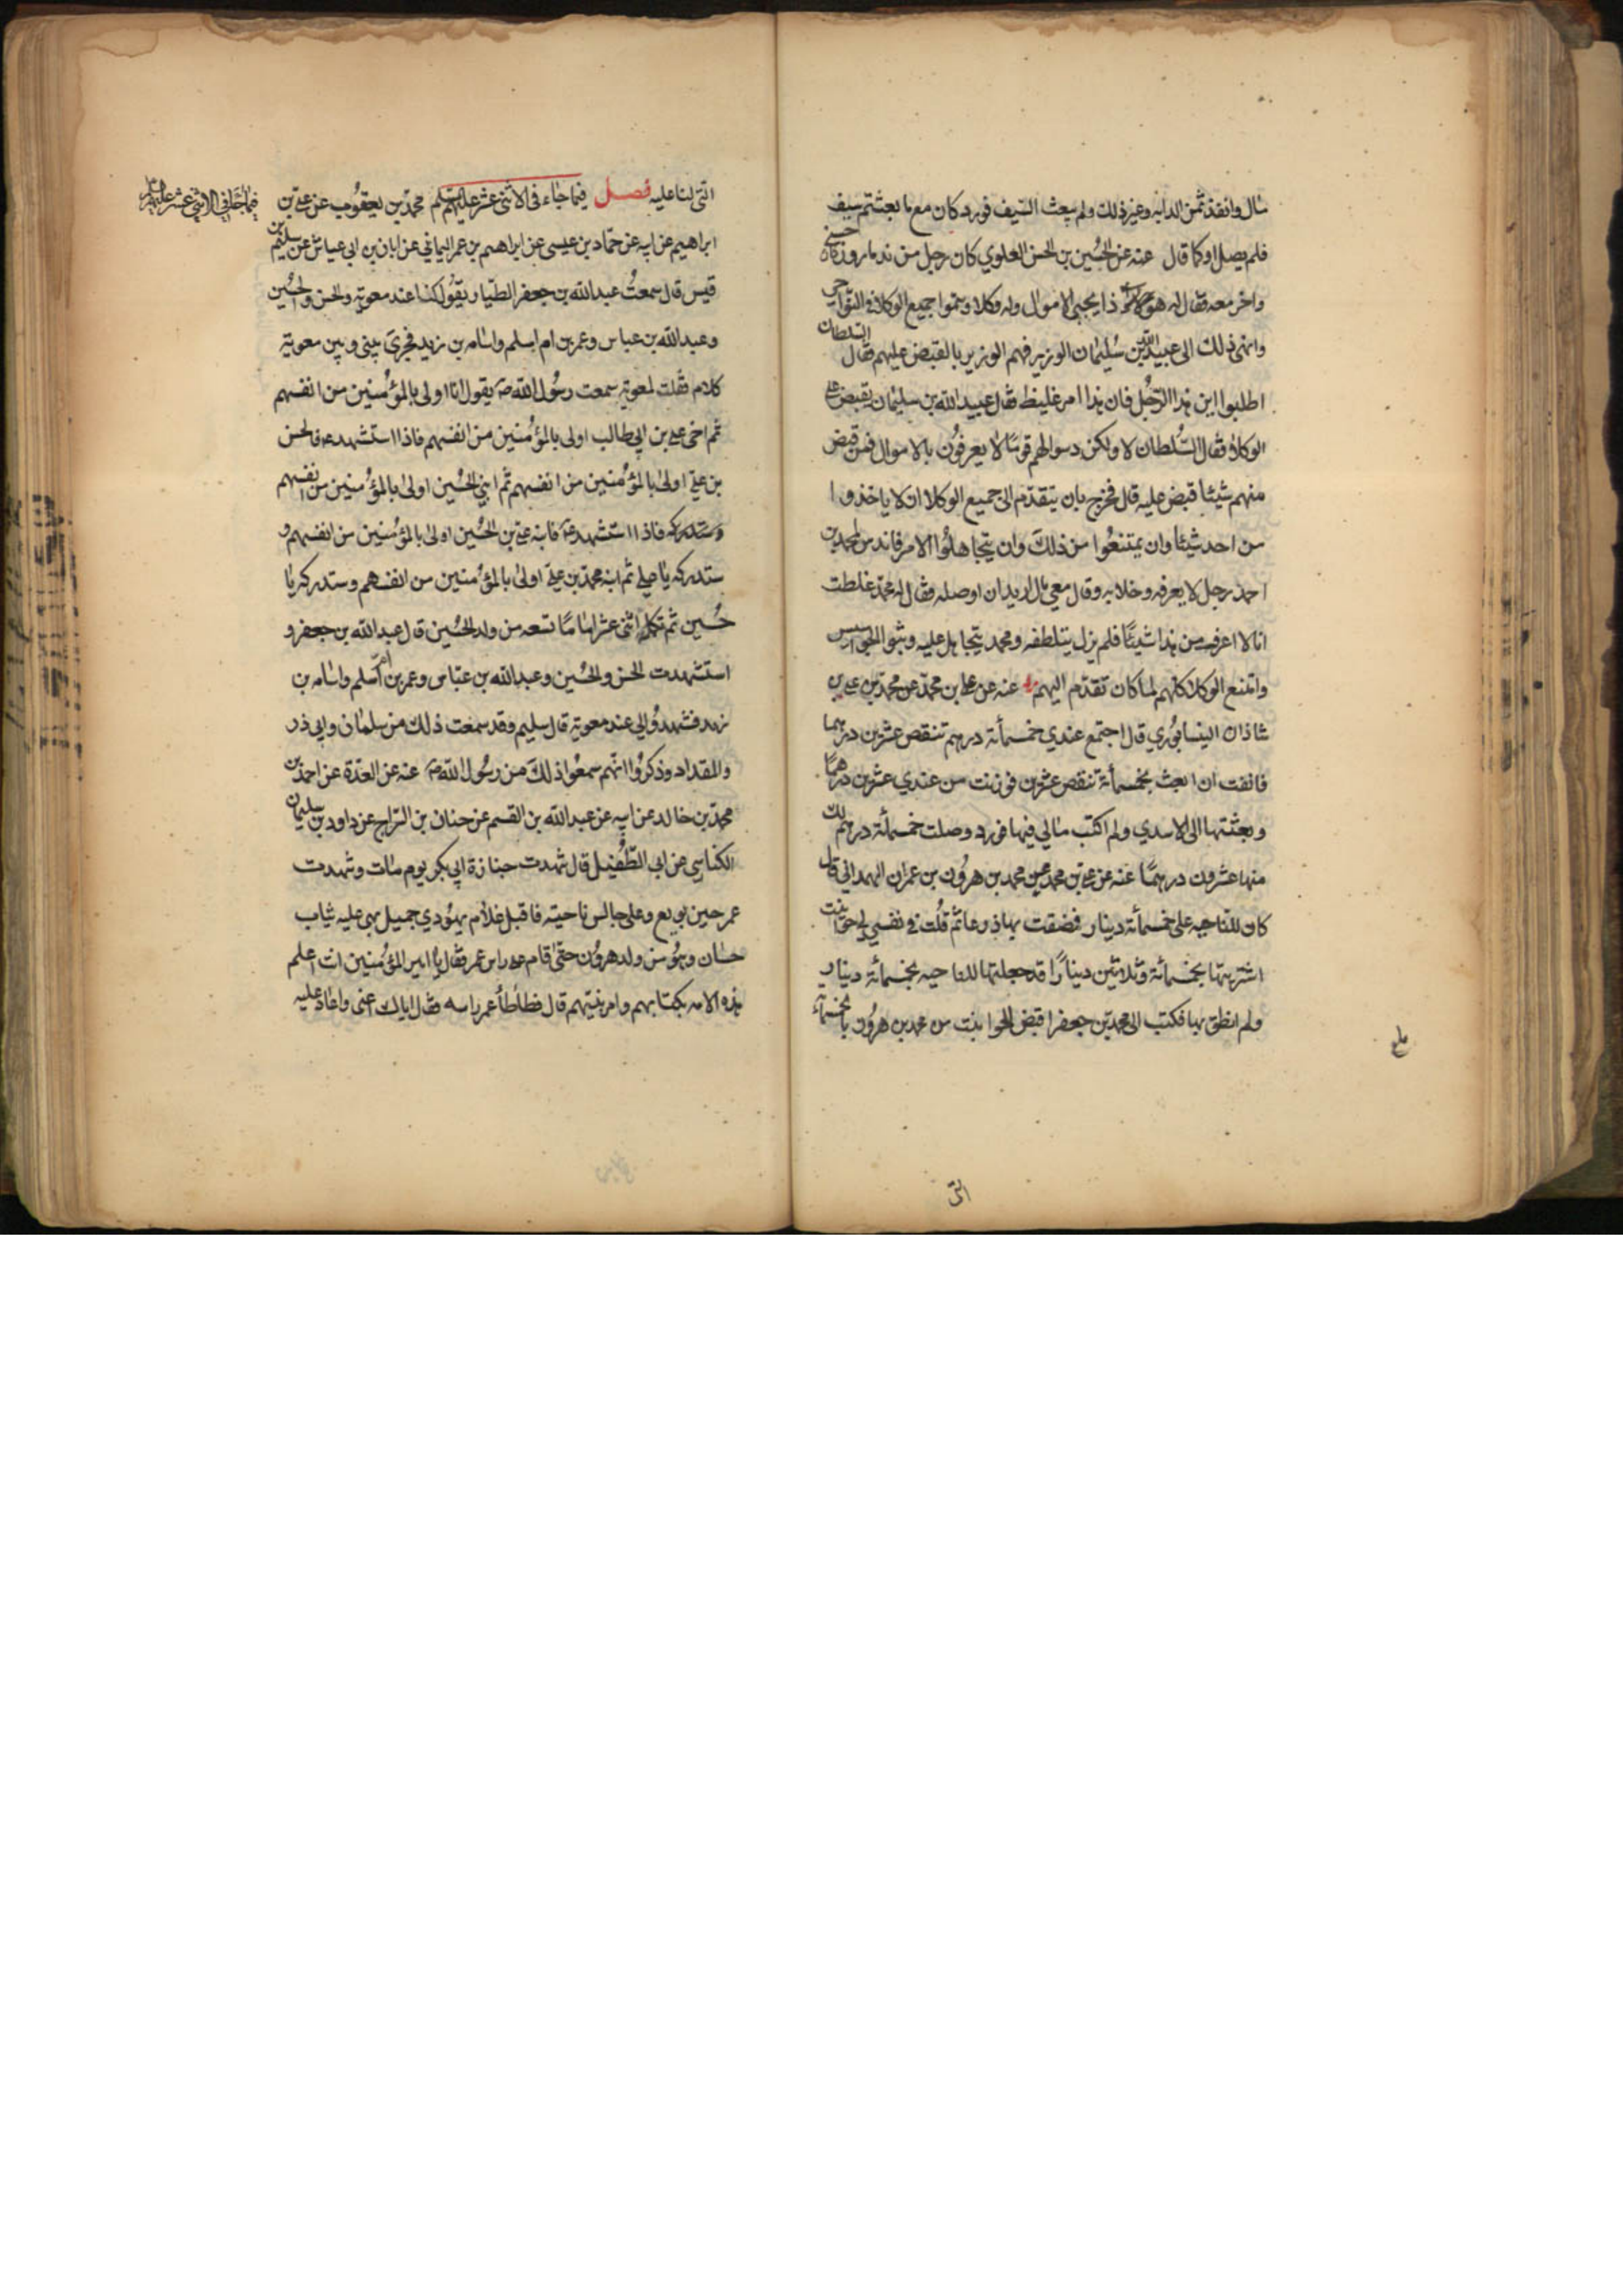 مال وانفذ ثمن الدابه وغير ذلك ولم يبعث السيف فورد كان مع ما بعثتم سيف
فلم يصل او كما قال عنه عن الحسين بن الحسن العلوي كان رجل من ندما روز حسني
واخر معه فقال له هو ذا يجبى الاموال وله وكلا وسموا جميع الوكلا في النواحي
وانهى ذلك الى عبيد الله بن سليمان الوزير فهم الوزير بالقبض عليهم فقال السلطان
اطلبوا اين هذا الرجل فان هذا امر غليظ فقال عبيد الله بن سليمان نقبض على
الوكلاء فقال السلطان لا ولكن دسوا لهم قومًا لا يعرفون بالاموال فمن قبض
منهم شيئا قبض عليه قال فخرج بان يتقدم الى جميع الوكلا ان لا ياخذوا
من احد شيئا وان يمتنعوا من ذلك وان يتجاهلوا الامر فاندس لمحمد بن
احمد رجل لا يعرفه وخلا به وقال معي مال اريد ان اوصله فقال له محمد غلطت
انا لا اعرف من هذا شيئًا فلم يزل يتلطفه ومحمد يتجاهل عليه وبثوا الجواسيس
وامتنع الوكلا كلهم لما كان تقدم اليهم عنه عن علي بن محمد عن محمد بن علي بن
شاذان النيسابوري قال اجتمع عندي خمسمأئة درهم تنقص عشرين درهما
فانفت ان ابعث بخمسمأئة تنقص عشرين فوزنت من عندي عشرين درهمًا
وبعثتها الى الاسدي ولم اكتب مالي فيها فورد وصلت خمسمأئة درهم لك
منها عشرون درهمًا عنه عن علي بن محمد عن محمد بن هرون بن عمران الهمداني قال
كان للناحيه على خمسمأئة دينار فضقت بها ذرعا ثم قلت في نفسي لي حوانيت
اشتريتها بخمسمأئة وثلاثين دينارًا قد جعلتها للناحيه بخمسمأئة دينار
ولم انطق بها فكتب الى محمد بن جعفر اقبض الحوانيت من محمد بن هرون بالخمسمأئة
التى
التى لنا عليه فصل فيما جاء فى الاثنى عشر عليهم السلم محمد بن يعقوب عن علي بن
فيما جاء في الاثني عشر عليهم السلم
ابراهيم عن ابيه عن حماد بن عيسى عن ابراهيم بن عمر اليماني عن ابان بن ابى عياش عن سليم بن
قيس قال سمعت عبد الله بن جعفر الطيار يقول كنا عند معوية والحسن والحسين
وعبد الله بن عباس وعمر بن ام اسلم واسامه بن زيد فجرى بيني وبين معوية
كلام فقلت لمعوية سمعت رسول الله ص يقول انا اولى بالمؤمنين من انفسهم
ثم اخى علي بن ابي طالب اولى بالمؤمنين من انفسهم فاذا استشهد ع فالحسن
بن علي اولى بالمؤمنين من انفسهم ثم ابني الحسين اولى بالمؤمنين من انفسهم
وستدركه فاذا استشهد ع فابنه علي بن الحسين اولى بالمؤمنين من انفسهم و
ستدركه يا علي ثم ابنه محمد بن علي اولى بالمؤمنين من انفسهم وستدركه يا
حسين ثم تكمله اثنى عشر امامًا تسعه من ولد الحسين قال عبد الله بن جعفر و
استشهدت الحسن والحسين وعبد الله بن عباس وعمر بن ام سلم واسامه بن
زيد فشهدوا لي عند معوية قال سليم وقد سمعت ذلك من سلمان وابي ذر
والمقداد وذكروا انهم سمعوا ذلك من رسول الله ص عنه عن العدة عن احمد بن
محمد بن خالد عن ابيه عن عبد الله بن القسم عن حنان بن السراج عن داود بن سليمان
الكناسي عن ابي الطفيل قال شهدت جنازة ابي بكر يوم مات وشهدت
عمر حين بويع وعلي جالس ناحيته فاقبل غلام يهودي جميل بهي عليه ثياب
حسان وهو من ولد هرون حتى قام على راس عمر فقال يا امير المؤمنين انت اعلم
هذه الامه بكتابهم وامر نبيهم قال فطأطأ عمر راسه فقال اياك اعني واعاد عليه